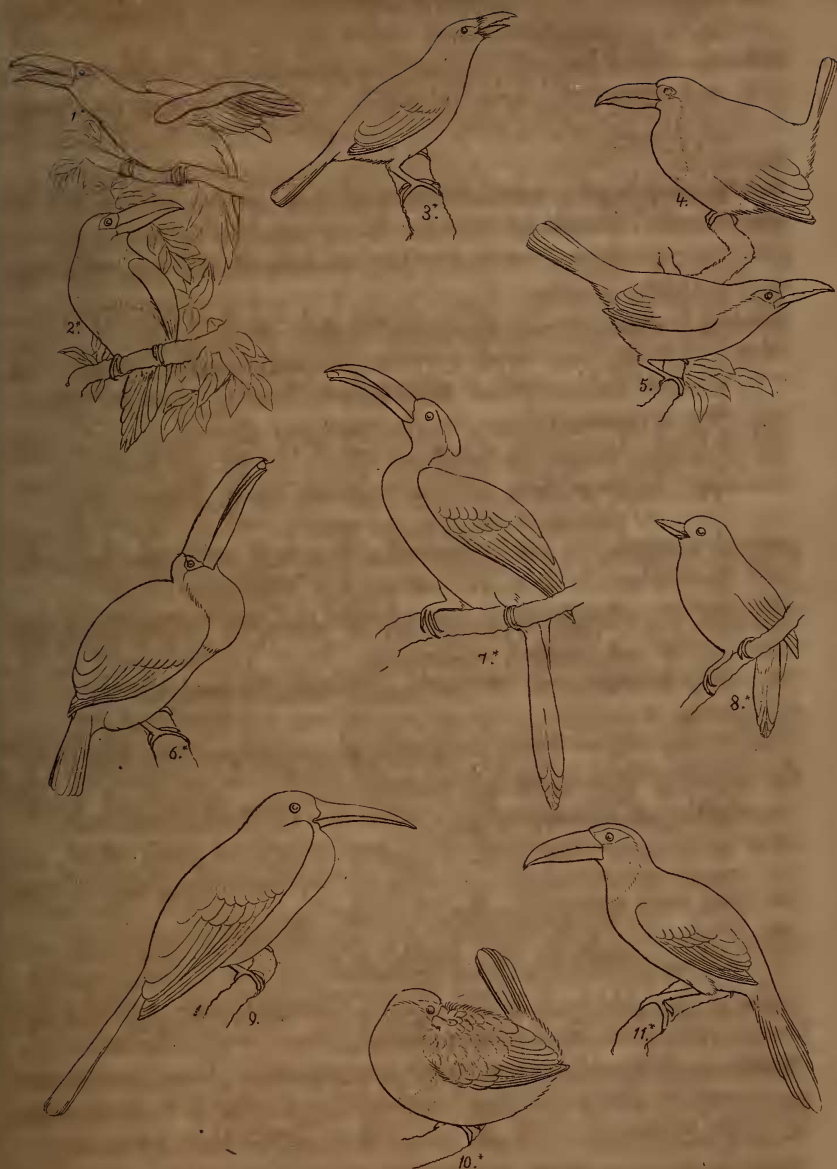 1.
2.*
3.*
4.
5.
6.*
7.*
8.*
9.
10.*
11.*